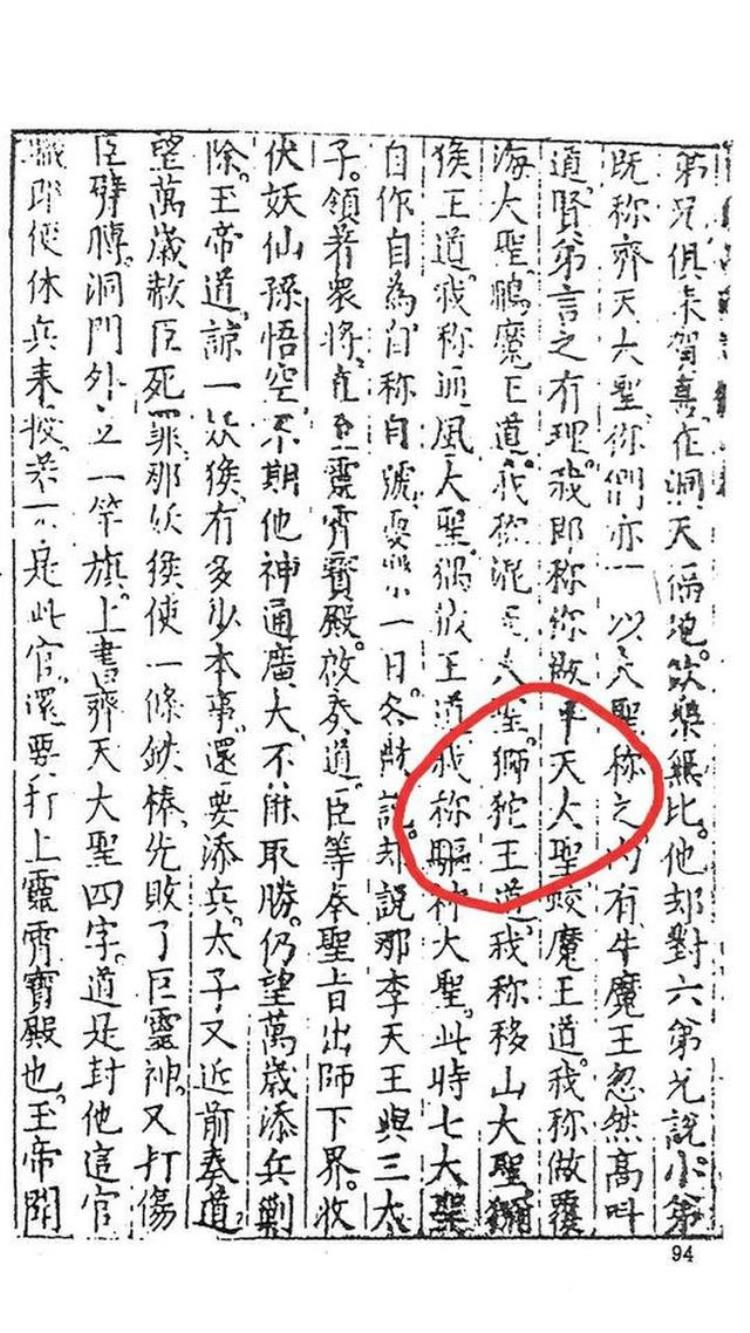 弟兄俱来賀喜在洞天福地。飲樂無比。他却對六弟兄說。小弟
既称齊天大聖。你們亦以大聖称之。內有牛魔王忽然高叫
道。賢弟言之有理。我即称你做平天大聖。蛟魔王道。我称做覆
海大聖。鵬魔王道。我称混天大聖。獅狔王道。我称移山大聖。獼
猴王道。我称通風大聖。狨王道。我称驅神大聖。此時七大聖
自作自為。自称自號。耍樂一日。各散訖。却說那李天王與三太
子。領着衆將。直至靈霄寶殿。啟奏道。臣等奉聖旨出師下界。收
伏妖仙孫悟空。不期他神通廣大。不能取勝。仍望萬歲添兵剿
除。玉帝道。諒一妖猴。有多少本事。還要添兵。太子又近前奏道。
望萬歲赦臣死罪。那妖猴使一條鉄棒。先敗了巨靈神。又打傷
臣臂膊。洞門外立一竿旗。上書齊天大聖四字。道是封他這官
職。即便休兵来投。若不是此官。還要打上靈霄寶殿也。玉帝聞
94